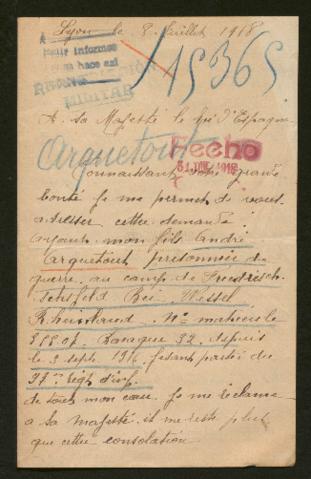 Lyon le 8 Juillet 1918
Pedir informes
REPATRIACIÓN
MILITAR
15365
A Sa Majesté le Roi d'Espagne
Arquetout
Hecho
31 JUL 1918
Connaissant votre grande
bonté je me permet de vous
adresser cette demande
ayant mon fils André
Arquetout prisonnier de
guerre au camp de Friedrich
feld Bei Wessel
Rheinland No matricule
Baraque 32, depuis
le 3 sept 1914 fesant partie du
regt d'inf.
de tout mon cœur je me réclame
a sa majesté il me reste plus
que cette consolation